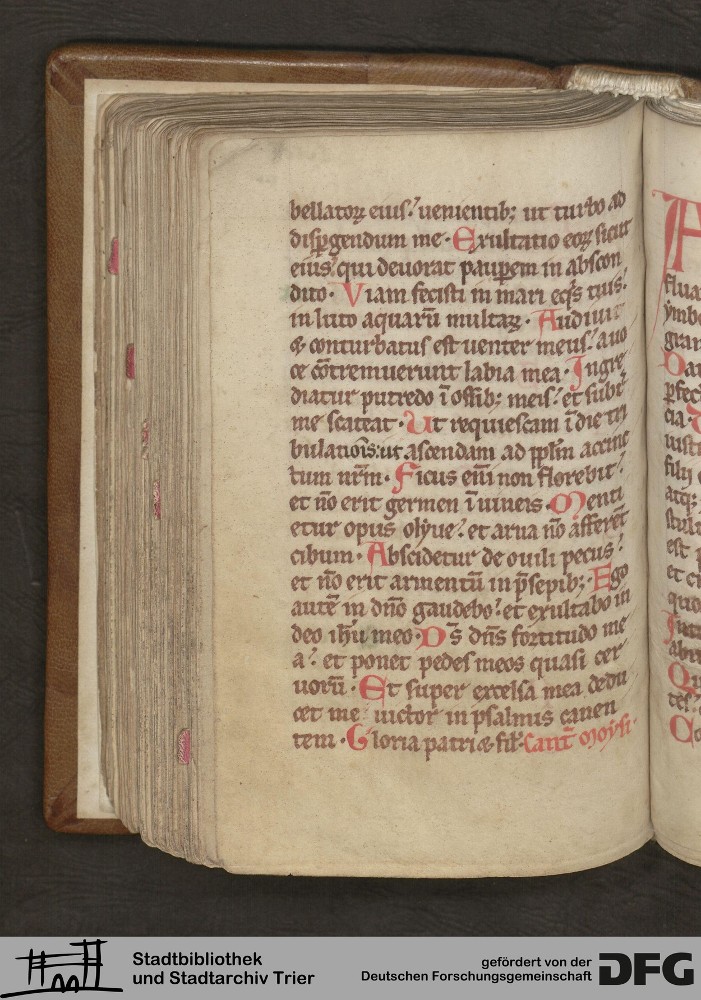 bellatoꝝ eius.ᷓ uenientibꝫ ut turbo ad
disꝑgendum me · Exultatio eoꝝ sicut
eius: qui deuorat pauꝑem in abscon
dito · Viam fecisti in mari eq̄s tuis:
in luto aquarū multaꝝ · Audiui
& conturbatus est uenter meus: a uo
ce cōtremuerunt labia mea · Ingre
diatur putredo ī ossibꝫ meis: et subt̄
me scateat · Ut requiescam ī die tri
bulatiōis: ut ascendam ad pplm̄ accinc
tum nr̄m · Ficus eīm non florebit:
et nō erit germen ī uineis · Menti
etur opus olyue: et arua nō afferēt
cibum · Abscidetur de ouili pecus:
et nō erit armentū in p̄sepibꝫ · Ego
autē in dn̄o gaudebo: et exultabo in
deo ih̄u meo · Ds̄ dn̄s fortitudo me
a: et ponet pedes meos quasi cer
uorū · Et super excelsa mea dedu
cet me uictor in psalmis canen
tem · Gloria patri & fil̄ · Cant̄ moysi ·
fluat
ymbe
gran
ꝑfect
cia ·
iusti
filij
atqꝫ
stult
est p
et c
quo
abu
Qu
tes:
Co
Stadtbibliothek
und Stadtarchiv Trier
gefördert von der
Deutschen Forschungsgemeinschaft
DFG